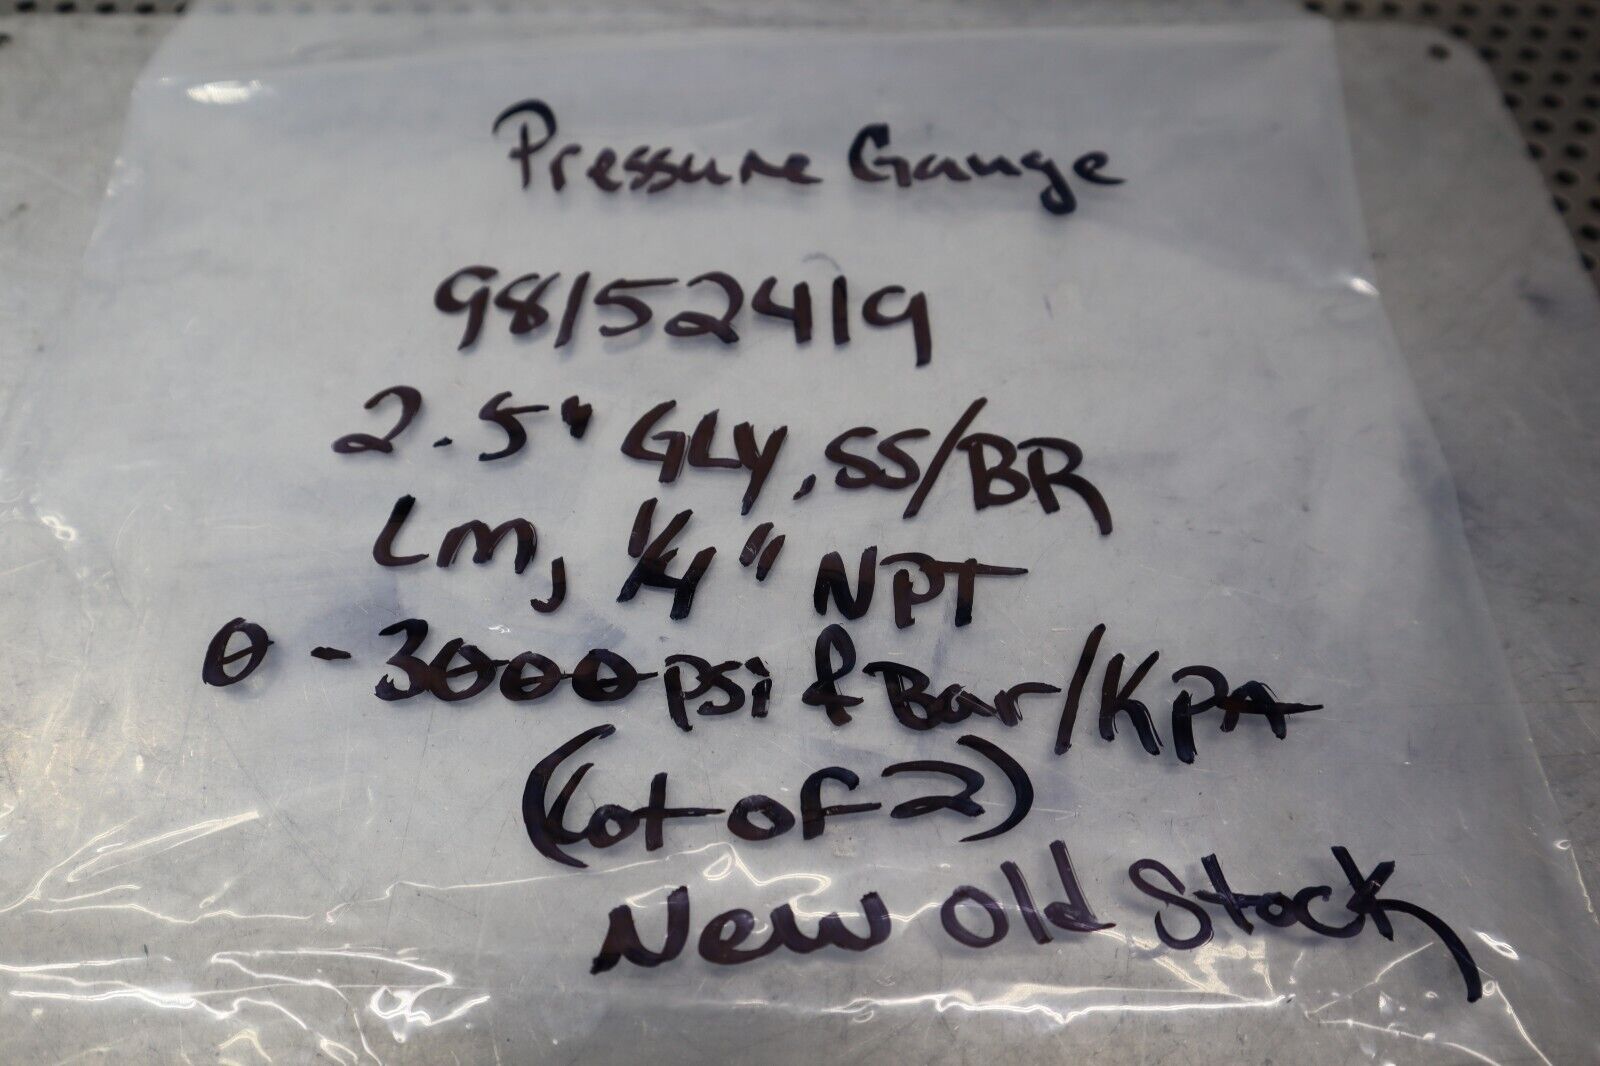 Pressure Gauge
98152419
2.5" GLY, SS/BR
LM, 1/4" NPT
0 - 3000 psi & Bar/KPA
(Lot of 2)
New Old Stock